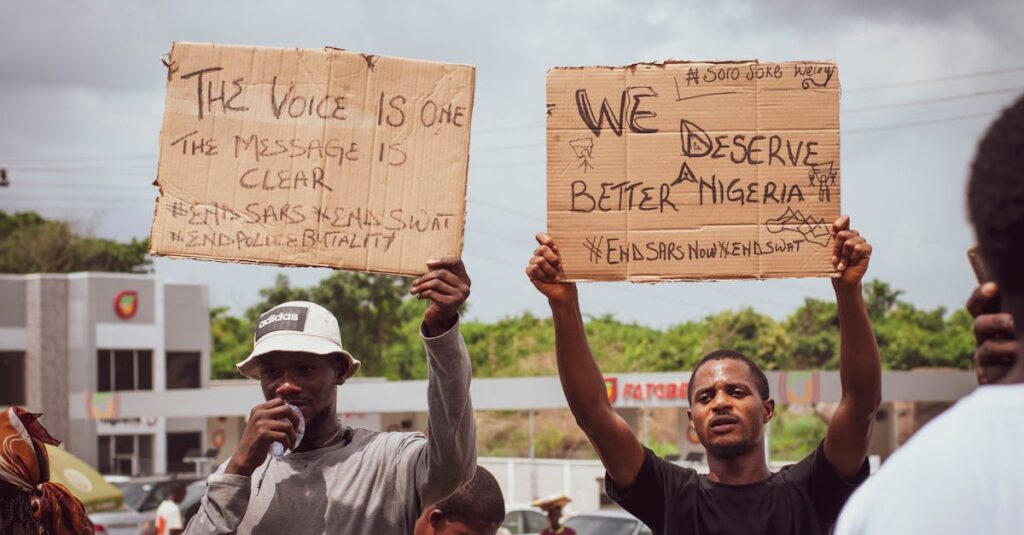 THE VOICE IS ONE
THE MESSAGE IS
CLEAR
#ENDSARS #ENDSWAT
#ENDPOLICEBUTALITY
#SORO SOKE Werey
WE
DESERVE
BETTER A NIGERIA
#ENDSARSNOW #ENDSWAT
adidas